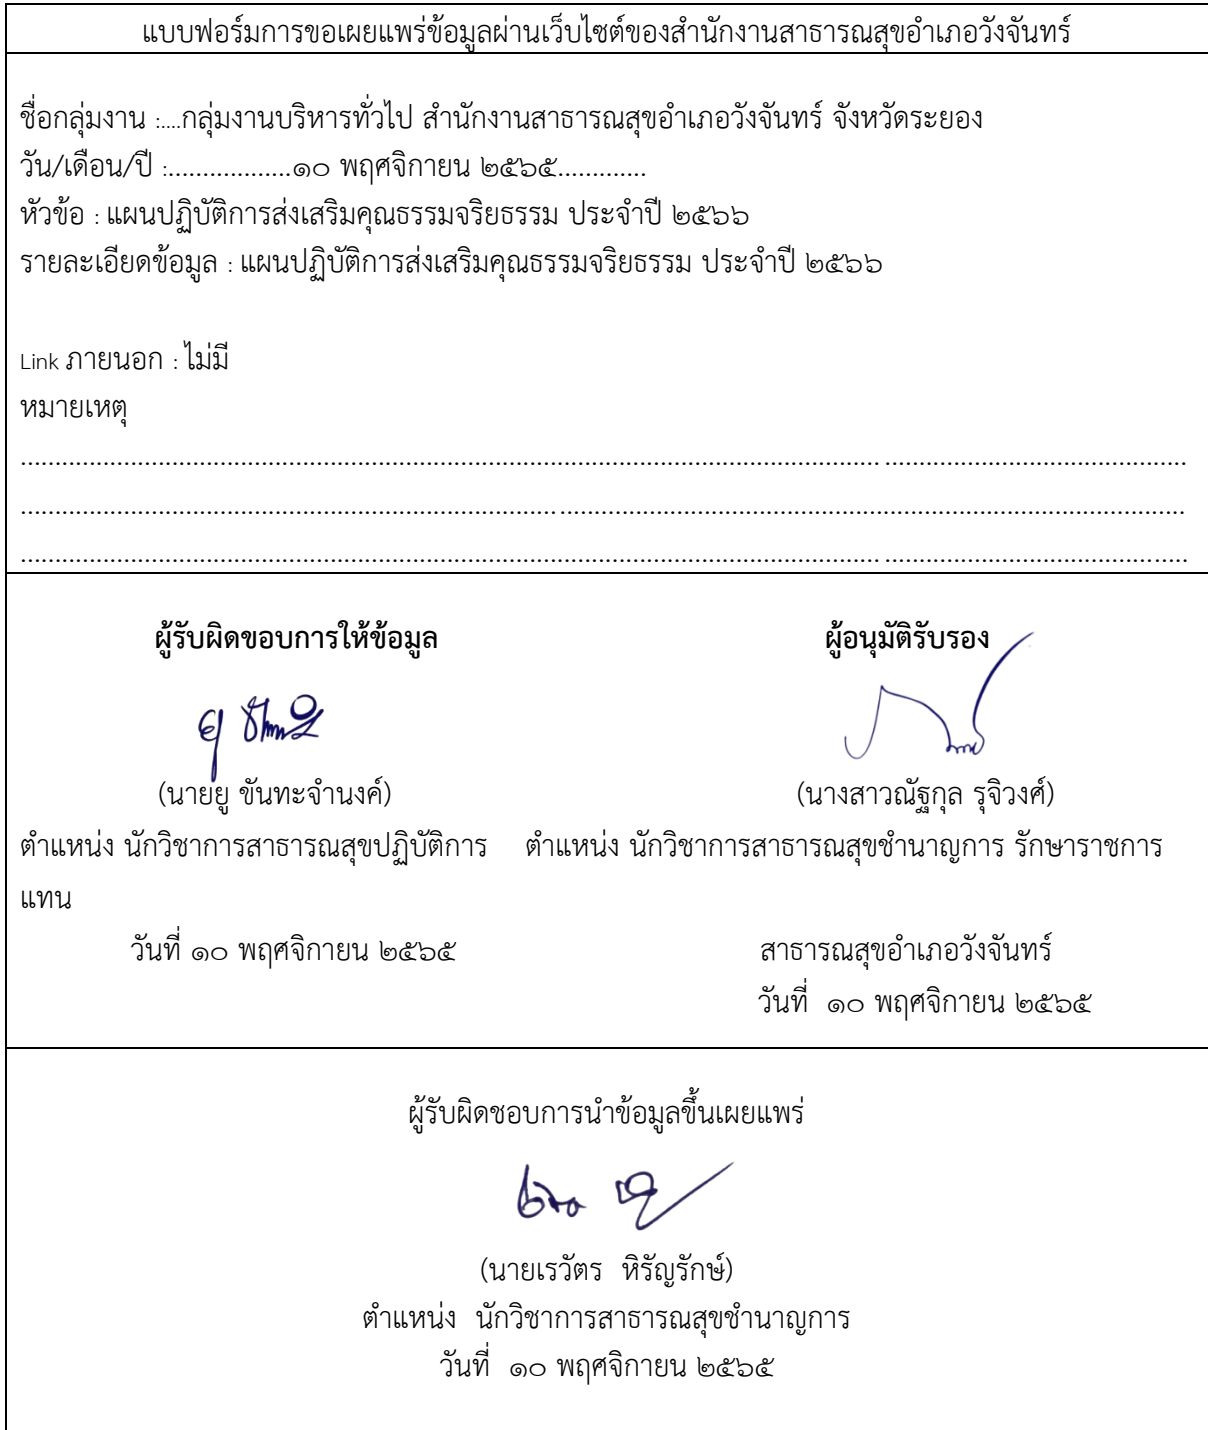 แบบฟอร์มการขอเผยแพร่ข้อมูลผ่านเว็บไซต์ของสำนักงานสาธารณสุขอำเภอวังจันทร์
ชื่อกลุ่มงาน :....กลุ่มงานบริหารทั่วไป สำนักงานสาธารณสุขอำเภอวังจันทร์ จังหวัดระยอง
วัน/เดือน/ปี :..................๑๐ พฤศจิกายน ๒๕๖๕.............
หัวข้อ : แผนปฏิบัติการส่งเสริมคุณธรรมจริยธรรม ประจำปี ๒๕๖๖
รายละเอียดข้อมูล : แผนปฏิบัติการส่งเสริมคุณธรรมจริยธรรม ประจำปี ๒๕๖๖
Link ภายนอก : ไม่มี
หมายเหตุ
ผู้รับผิดขอบการให้ข้อมูล ผู้อนุมัติรับรอง
(นายยู ขันทะจำนงค์) (นางสาวณัฐกุล รุจิวงศ์)
ตำแหน่ง นักวิชาการสาธารณสุขปฏิบัติการ ตำแหน่ง นักวิชาการสาธารณสุขชำนาญการ รักษาราชการ
แทน
วันที่ ๑๐ พฤศจิกายน ๒๕๖๕ สาธารณสุขอำเภอวังจันทร์
วันที่ ๑๐ พฤศจิกายน ๒๕๖๕
ผู้รับผิดชอบการนำข้อมูลขึ้นเผยแพร่
(นายเรวัตร หิรัญรักษ์)
ตำแหน่ง นักวิชาการสาธารณสุขชำนาญการ
วันที่ ๑๐ พฤศจิกายน ๒๕๖๕